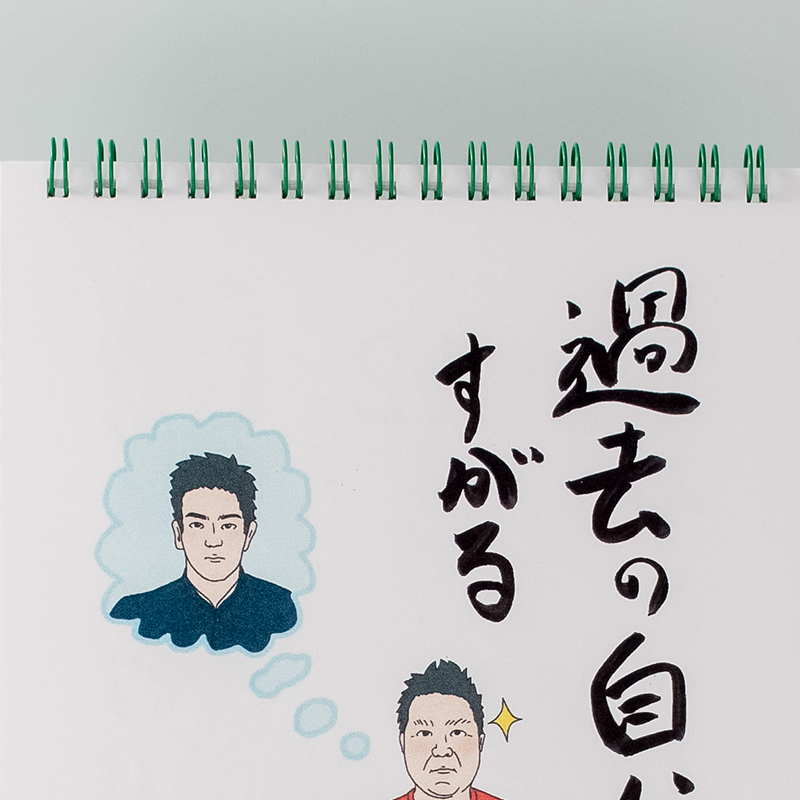 過去の自
すがる